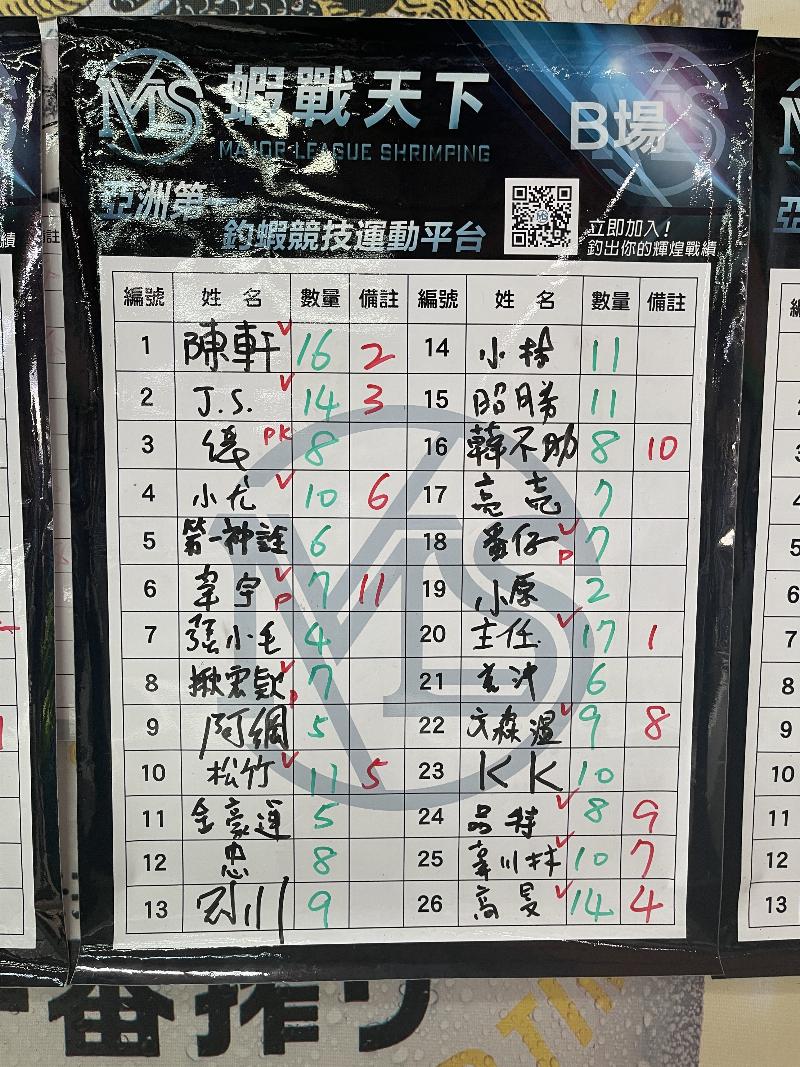 MLS
蝦戰天下
MAJOR LEAGUE SHRIMPING
B場
亞洲第一
釣蝦競技運動平台
立即加入!
釣出你的輝煌戰績
編號 姓名 數量 備註 編號 姓名 數量 備註
1 陳軒 ✓ 16 2 14 小林 11
2 J.S. ✓ 14 3 15 昭勝 11
3 PK 8 16 韓不助 8 10
4 小尤 ✓ 10 6 17 亮亮 7
5 第一神誰 6 18 番仔 ✓ P 7
6 韋宇 ✓ P 7 11 19 小原 2
7 張小毛 4 20 主任 ✓ 17 1
8 揪雲歀 ✓ P 7 21 6
9 阿綱 5 22 文森溫 ✓ 9 8
10 松竹 ✓ 11 5 23 KK 10
11 金豪運 5 24 品特 ✓ 8 9
12 忠 8 25 韋川林 ✓ 10 7
13 9 26 高旻 ✓ 14 4
一番搾り